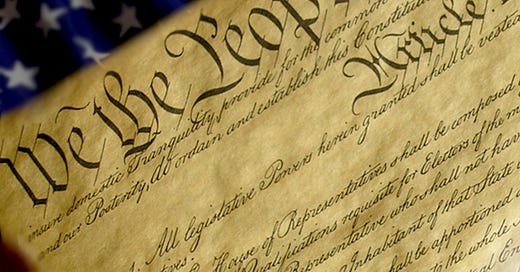 We the Peop
Article
insure domestic Tranquility, provide for the common
and our Posterity, do ordain and establish this Constitution
All legislative Powers herein granted shall be vested
House of Representatives shall be composed
Qualifications requisite for Electors of the m
Representative who shall not hav
Inhabitant of that State
shall be apportioned a
the whole